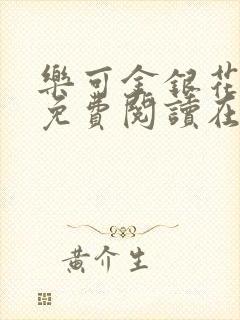 樂可金銀花
免費閱讀在
黃介生